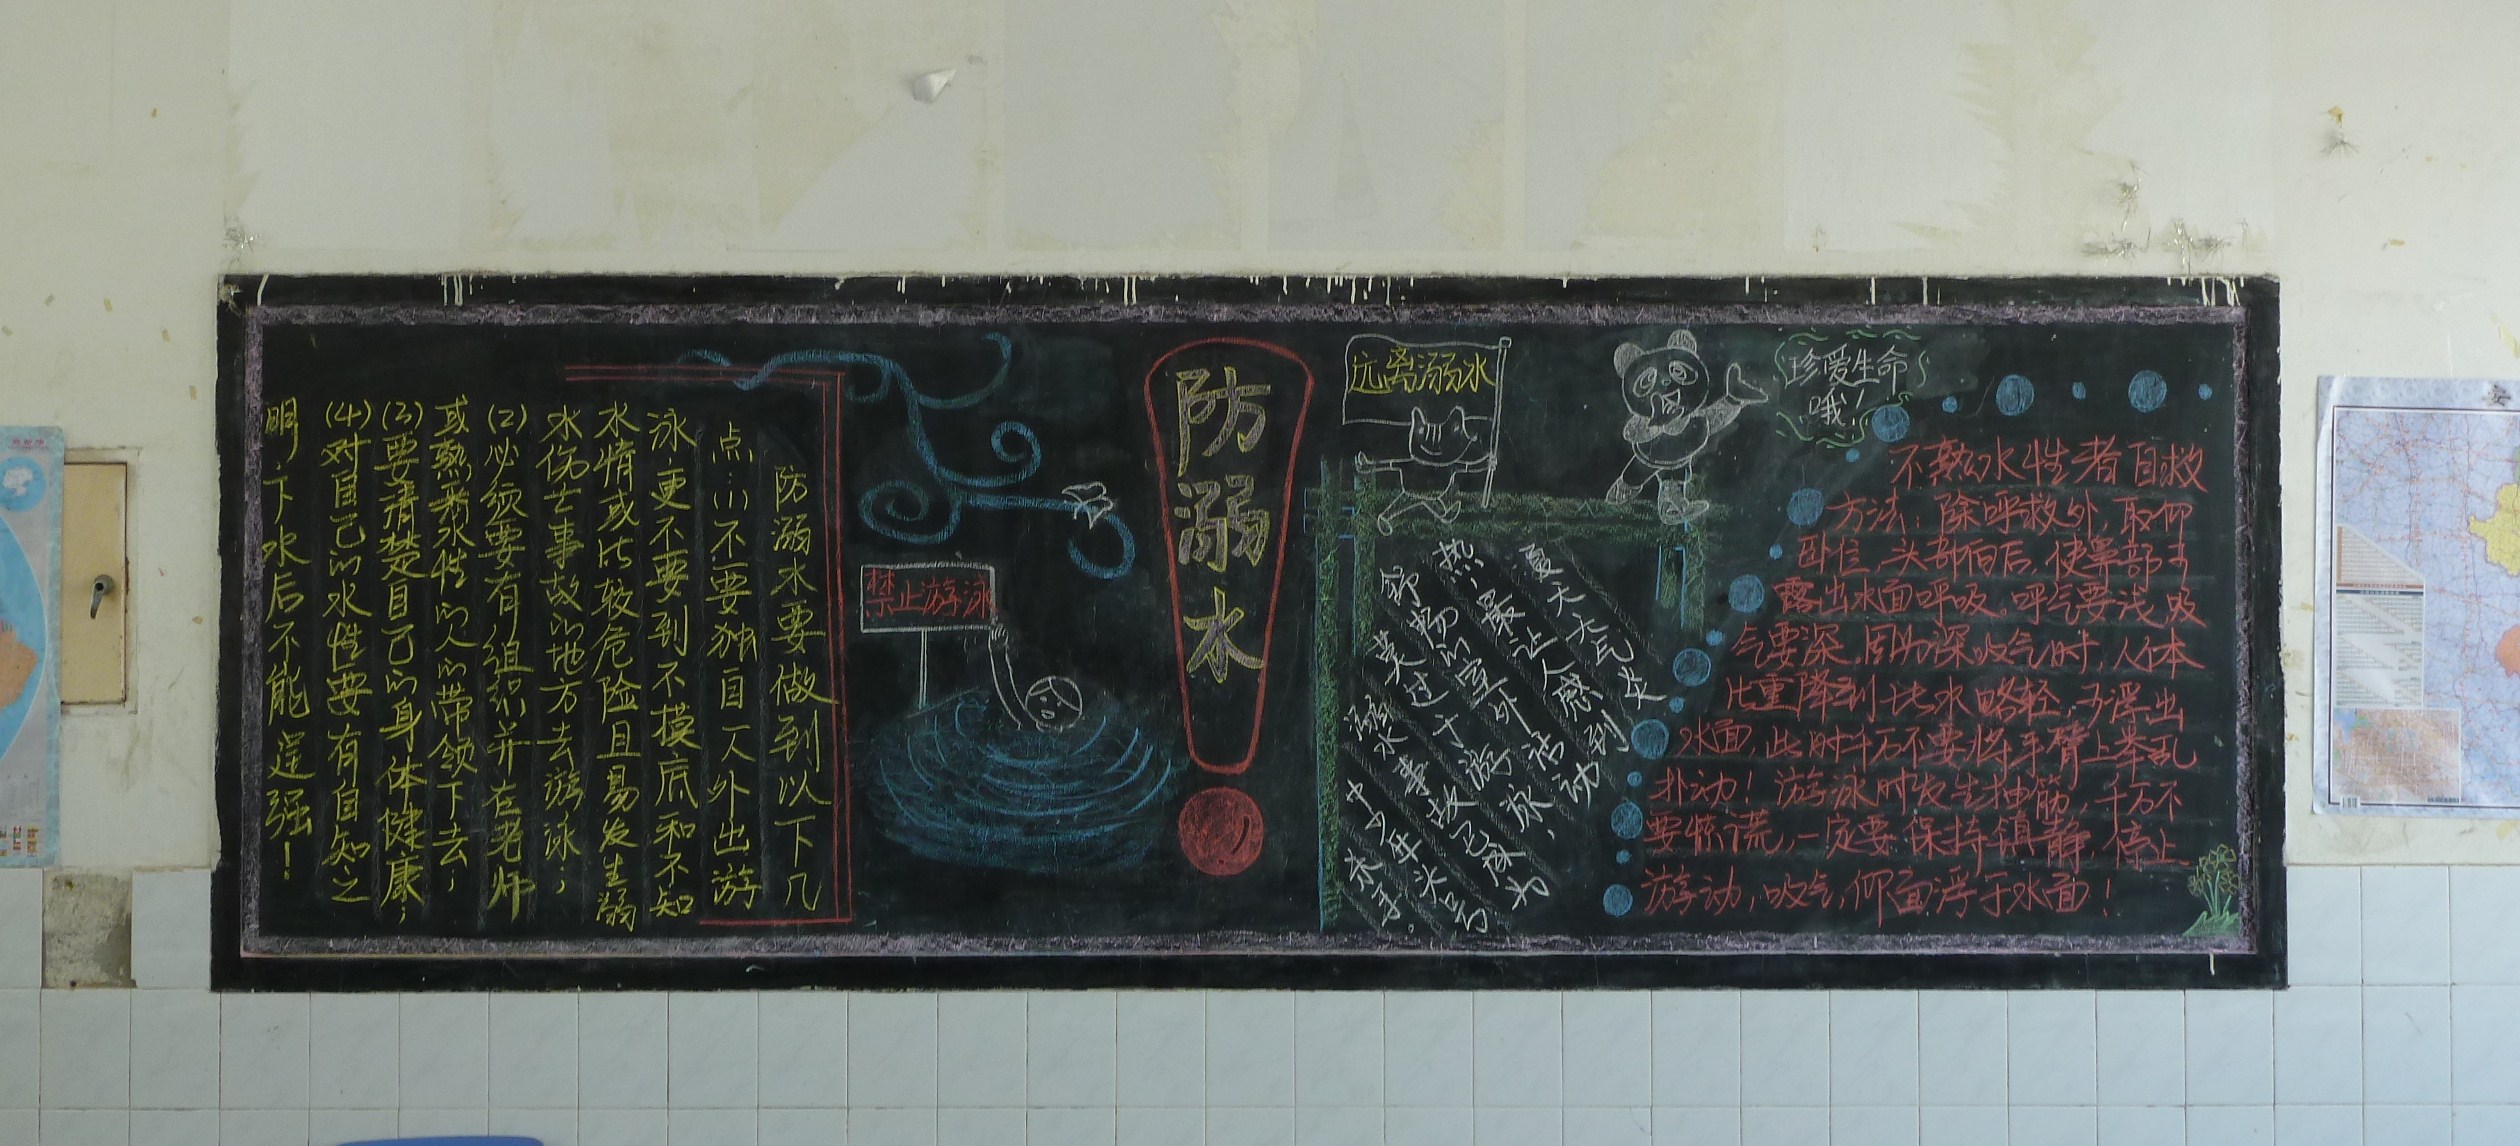 防溺水要做到以下几
点：(1)不要独自一人外出游
泳，更不要到不摸底和不知
水情或比较危险且易发生溺
水伤亡事故的地方去游泳；
(2)必须要有组织并在老师
或熟悉水性的人的带领下去；
(3)要清楚自己的身体健康；
(4)对自己的水性要有自知之
明，下水后不能逞强！
禁止游泳
防溺水
远离溺水
珍爱生命
哦！
夏天天气炎
热，最让人感到
舒畅的室外活动
莫过于游泳，
溺水事故已成为
中少年头号
杀手.
不熟水性者自救
方法：除呼救外，取仰
卧位，头部向后，使鼻部可
露出水面呼吸。呼气要浅，吸
气要深，因为深吸气时，人体
比重降到比水略轻，可浮出
水面，此时千万不要将手臂上举乱
扑动！游泳时发生抽筋，千万不
要惊谎，一定要保持镇静，停止
游动，吸气，仰面浮于水面！